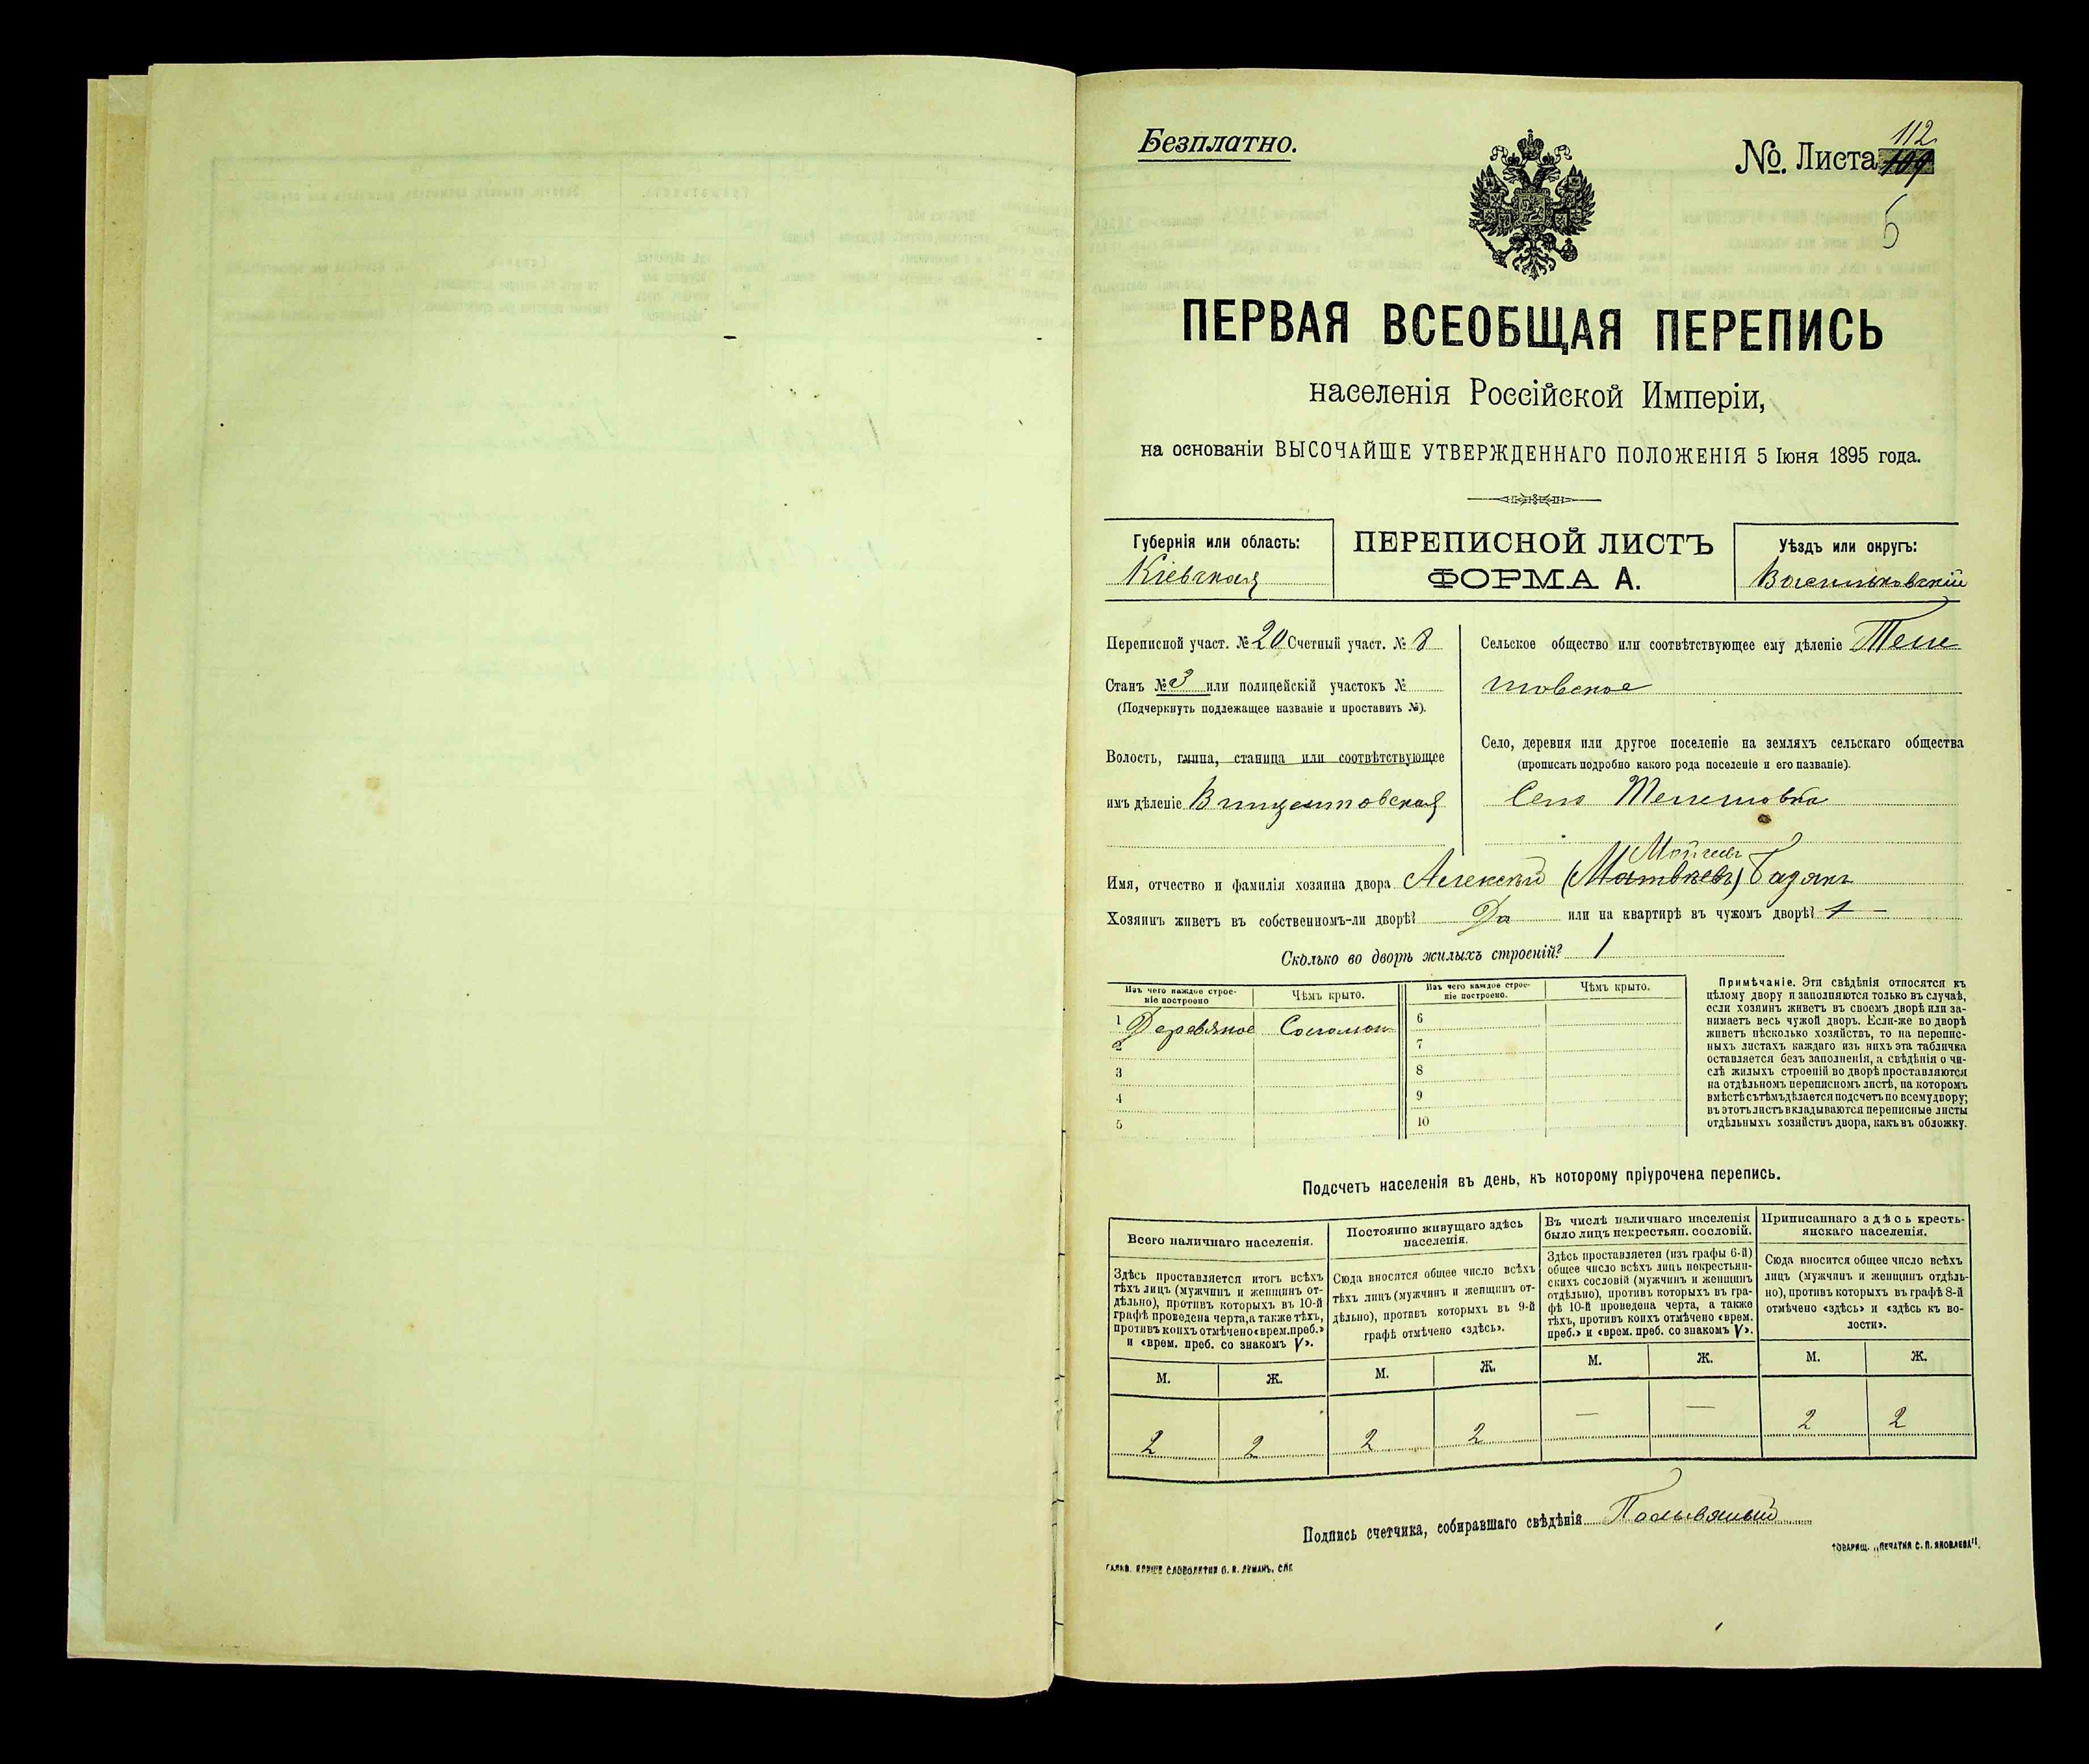 Безплатно.
№ Листа 112
5
ПЕРВАЯ ВСЕОБЩАЯ ПЕРЕПИСЬ
населенія Россійской Имперіи,
на основаніи ВЫСОЧАЙШЕ УТВЕРЖДЕННАГО ПОЛОЖЕНІЯ 5 Іюня 1895 года.
Губернія или область:
Кіевская
ПЕРЕПИСНОЙ ЛИСТЪ
ФОРМА А.
Уѣздъ или округъ:
Васильковскій
Переписной участ. № 20 Счетный участ. № 8
Станъ № 3 или полицейскій участокъ №
(Подчеркнуть подлежащее названіе и проставить №).
Волость, гмина, станица или соотвѣтствующее
имъ дѣленіе Винцентовская
Сельское общество или соотвѣтствующее ему дѣленіе Теле
шовское
Село, деревня или другое поселеніе на земляхъ сельскаго общества
(прописать подробно какого рода поселеніе и его названіе).
Село Телешовка
Имя, отчество и фамилія хозяина двора Алексѣй (Матвѣевъ) Моисеевъ
Хозяинъ живетъ въ собственномъ-ли дворѣ? Да или на квартирѣ въ чужомъ дворѣ? —
Сколько во дворѣ жилыхъ строеній? 1
Изъ чего каждое строе-
ніе построено
Чѣмъ крыто.
Изъ чего каждое строе-
ніе построено.
Чѣмъ крыто.
1 Деревяное Соломою
2
3
4
5
6
7
8
9
10
Примѣчаніе. Эти свѣдѣнія относятся къ
цѣлому двору и заполняются только въ случаѣ,
если хозяинъ живетъ въ своемъ дворѣ или за-
нимаетъ весь чужой дворъ. Если-же во дворѣ
живетъ нѣсколько хозяйствъ, то на перепис-
ныхъ листахъ каждаго изъ нихъ эта табличка
оставляется безъ заполненія, а свѣдѣнія о чи-
слѣ жилыхъ строеній во дворѣ проставляются
на отдѣльномъ переписномъ листѣ, на которомъ
вмѣстѣ съ тѣмъ дѣлается подсчетъ по всему двору;
въ этотъ листъ вкладываются переписные листы
отдѣльныхъ хозяйствъ двора, какъ въ обложку.
Подсчетъ населенія въ день, къ которому пріурочена перепись.
Всего наличнаго населенія.
Здѣсь проставляется итогъ всѣхъ
тѣхъ лицъ (мужчинъ и женщинъ от-
дѣльно), противъ которыхъ въ 10-й
графѣ проведена черта, а также тѣхъ,
противъ коихъ отмѣчено «врем. преб.»
и «врем. преб. со знакомъ V».
Постоянно живущаго здѣсь
населенія.
Сюда вносится общее число всѣхъ
тѣхъ лицъ (мужчинъ и женщинъ от-
дѣльно), противъ которыхъ въ 9-й
графѣ отмѣчено «здѣсь».
Въ числѣ наличнаго населенія
было лицъ некрестьян. сословій.
Здѣсь проставляется (изъ графы 6-й)
общее число всѣхъ лицъ некрестьян-
скихъ сословій (мужчинъ и женщинъ
отдѣльно), противъ которыхъ въ гра-
фѣ 10-й проведена черта, а также
тѣхъ, противъ коихъ отмѣчено «врем.
преб.» и «врем. преб. со знакомъ V».
Приписаннаго здѣсь кресть-
янскаго населенія.
Сюда вносится общее число всѣхъ
лицъ (мужчинъ и женщинъ отдѣль-
но), противъ которыхъ въ графѣ 8-й
отмѣчено «здѣсь» и «здѣсь къ во-
лости».
М. Ж. М. Ж. М. Ж. М. Ж.
2 2 2 2 — — 2 2
Подпись счетчика, собиравшаго свѣдѣнія
ТОВАРИЩ. „ПЕЧАТНЯ С. П. ЯКОВЛЕВА".
СЛОВОЛИТНИ О. И. ЛЕМАНЪ, СПБ